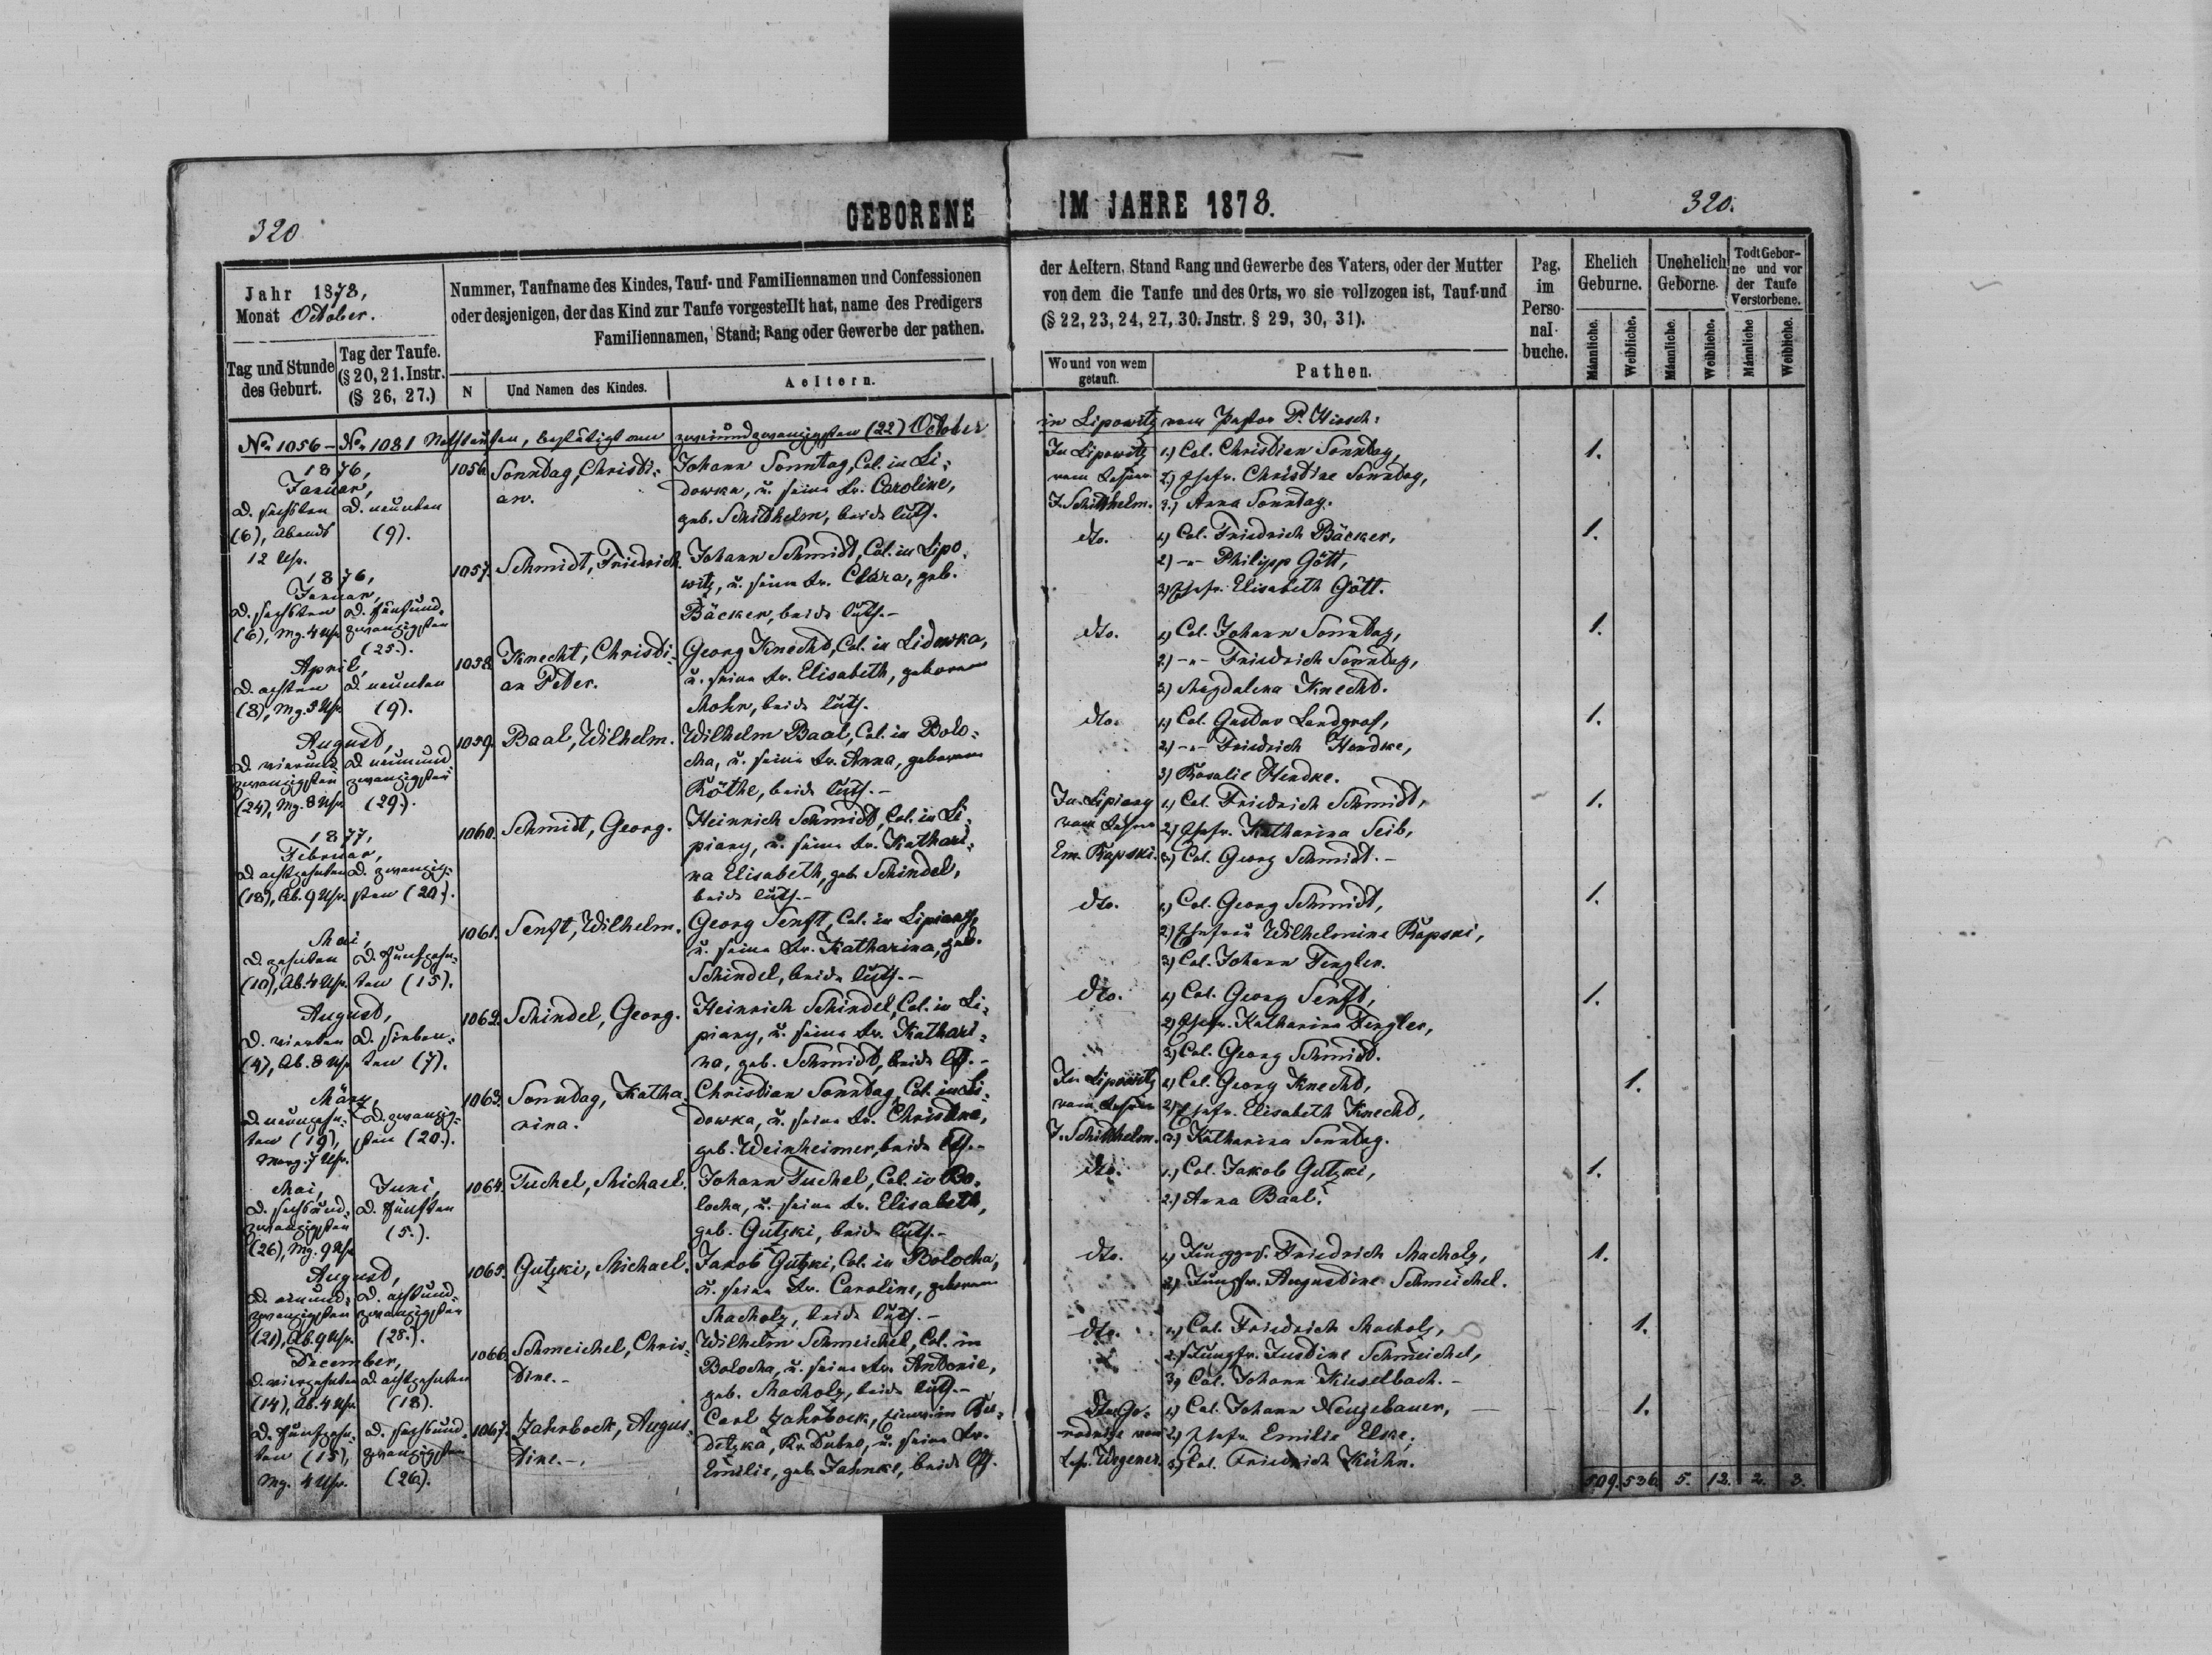 320
GEBORENE
IM JAHRE 1878.
320.
Jahr 1878,
Monat October.
Tag und Stunde
des Geburt.
Tag der Taufe.
(§ 20, 21. Instr.
(§ 26, 27.)
Nummer, Taufname des Kindes, Tauf- und Familiennamen und Confessionen
oder desjenigen, der das Kind zur Taufe vorgestellt hat, name des Predigers
Familiennamen, Stand; Rang oder Gewerbe der pathen.
N
Und Namen des Kindes.
Aeltern.
der Aeltern, Stand Rang und Gewerbe des Vaters, oder der Mutter
von dem die Taufe und des Orts, wo sie vollzogen ist, Tauf-und
(§ 22, 23, 24, 27, 30. Jnstr. § 29, 30, 31).
Wo und von wem
getauft.
Pathen.
Pag.
im
Perso-
nal-
buche.
Ehelich
Geburne.
Unehelich
Geborne.
Todt Gebor-
ne und vor
der Taufe
Verstorbene.
Männliche.
Weibliche.
Männliche.
Weibliche.
Männliche
Weibliche.
No 1056 - No 1081 Nothtaufen, bestätigt am zweiundzwanzigsten (22) October
in Lipowitz vom Pastor Dr. Hirsch:
1876,
Januar,
d. sechsten
(6), Abends
12 Uhr.
d. neunten
(9).
1056.
Sonndag, Christi-
an.
Johann Sonntag, Col. in Li-
dowka, u. seine Fr. Caroline,
geb. Schithelm, beide luth.
In Lipowitz
vom Lehrer
J. Schithelm.
1.) Col. Christian Sonndag,
2.) Ehefr. Christine Sonndag,
3.) Anna Sonndag.
1.
1876,
Januar,
d. sechsten
(6), Mg. 4 Uhr.
d. fünfund-
zwanzigsten
(25.).
1057.
Schmidt, Friedrich.
Johann Schmidt, Col. in Lipo-
witz, u. seine Fr. Clara, geb.
Bäcker, beide luth.-
dto.
1.) Col. Friedrich Bäcker,
2) -"- Philipp Gött,
3) Ehefr. Elisabeth Gött.
1.
April,
d. achten
(8), Mg. 3 Uhr.
d. neunten
(9).
1058.
Knecht, Christi-
an Peter.
Georg Knecht, Col. in Lidowka,
u. seine Fr. Elisabeth, geborene
Mohr, beide luth.
dto.
1.) Col. Johann Sonndag,
2.) -"- Friedrich Sonndag,
3.) Magdalena Knecht.
1.
August,
d. vierund-
zwanzigsten
(24), Mg. 8 Uhr.
d. neunund-
zwanzigsten
(29.).
1059.
Baal, Wilhelm.
Wilhelm Baal, Col. in Bolo-
cha, u. seine Fr. Anna, geborene
Köthe, beide luth.-
dto.
1.) Col. Gustav Landgraf,
2.) -"- Friedrich Hendke,
3) Rosalie Hendke.
1.
1877,
Februar,
d. achtzehnten
(18), Ab. 9 Uhr.
d. zwanzig-
sten (20.).
1060.
Schmidt, Georg.
Heinrich Schmidt, Col. in Li-
piany, u. seine Fr. Kathari-
na Elisabeth, geb. Schindel,
beide luth.-
In Lipiany
vom Lehrer
Em. Rapski.
1.) Col. Friedrich Schmidt,
2.) Ehefr. Katharina Seib,
3.) Col. Georg Schmidt.-
1.
Mai,
d. zehnten
(10), Ab. 4 Uhr.
d. fünfzehn-
ten (15).
1061.
Senft, Wilhelm.
Georg Senft, Col. in Lipiany,
u. seine Fr. Katharina, geb.
Schindel, beide luth.-
dto.
1.) Col. Georg Schmidt,
2.) Ehefrau Wilhelmine Rapski,
3.) Col. Johann Fengler.
1.
August,
d. vierten
(4), Ab. 8 Uhr.
d. sieben-
ten (7).
1062.
Schindel, Georg.
Heinrich Schindel, Col. in Li-
piany, u. seine Fr. Kathari-
na, geb. Schmidt, beide lth.-
dto.
1.) Col. Georg Senft,
2.) Ehefr. Katharina Fengler,
3.) Col. Georg Schmidt.
1.
März,
d. neunzehn-
ten (19),
Morg. 7 Uhr.
d. zwanzig-
sten (20.).
1063.
Sonndag, Katha-
rina.
Christian Sonndag, Col. in Li-
dowka, u. seine Fr. Christine,
geb. Weinheimer, beide lth.-
In Lipowitz
vom Lehrer
J. Schithelm.
1.) Col. Georg Knecht,
2.) Ehefr. Elisabeth Knecht,
3.) Katharina Sonndag.
1.
Mai,
d. sechsund-
zwanzigsten
(26), Mg. 9 Uhr.
Juni,
d. fünften
(5.).
1064.
Tuchel, Michael.
Johann Tuchel, Col. in Bo-
locha, u. seine Fr. Elisabeth,
geb. Gutzki, beide luth.-
dto.
1.) Col. Jakob Gutzki,
2.) Anna Baal.
1.
August,
d. einund-
zwanzigsten
(21), Ab. 9 Uhr.
d. achtund-
zwanzigsten
(28.).
1065.
Gutzki, Michael.
Jakob Gutzki, Col. in Bolocha,
u. seine Fr. Caroline, geborene
Macholz, beide luth.-
dto.
1.) Jungges. Friedrich Macholz,
2.) Jungfr. Augustine Schmeichel.
1.
December,
d. vierzehnten
(14), Ab. 4 Uhr.
d. achtzehnten
(18).
1066.
Schmeichel, Chris-
tine.-
Wilhelm Schmeichel, Col. in
Bolocha, u. seine Fr. Antonie,
geb. Macholz, beide luth.-
dto.
1.) Col. Friedrich Macholz,
2.) Jungfr. Justine Schmeichel,
3.) Col. Johann Kieselbach.-
1.
d. fünfzehn-
ten (15),
Mg. 4 Uhr.
d. sechsund-
zwanzigsten
(26).
1067.
Jahrbock, Augus-
tine.-
Carl Jahrbock,
Kr. Dubno, u. seine Fr.
Emilie, geb. Jahnke, beide lth.
Wegener.
1.) Col. Johann Neugebauer,
2.) Ehefr. Emilie Elske,
3.) Col. Friedrich Kühn.
1.
509. 536. 5. 12. 2. 3.